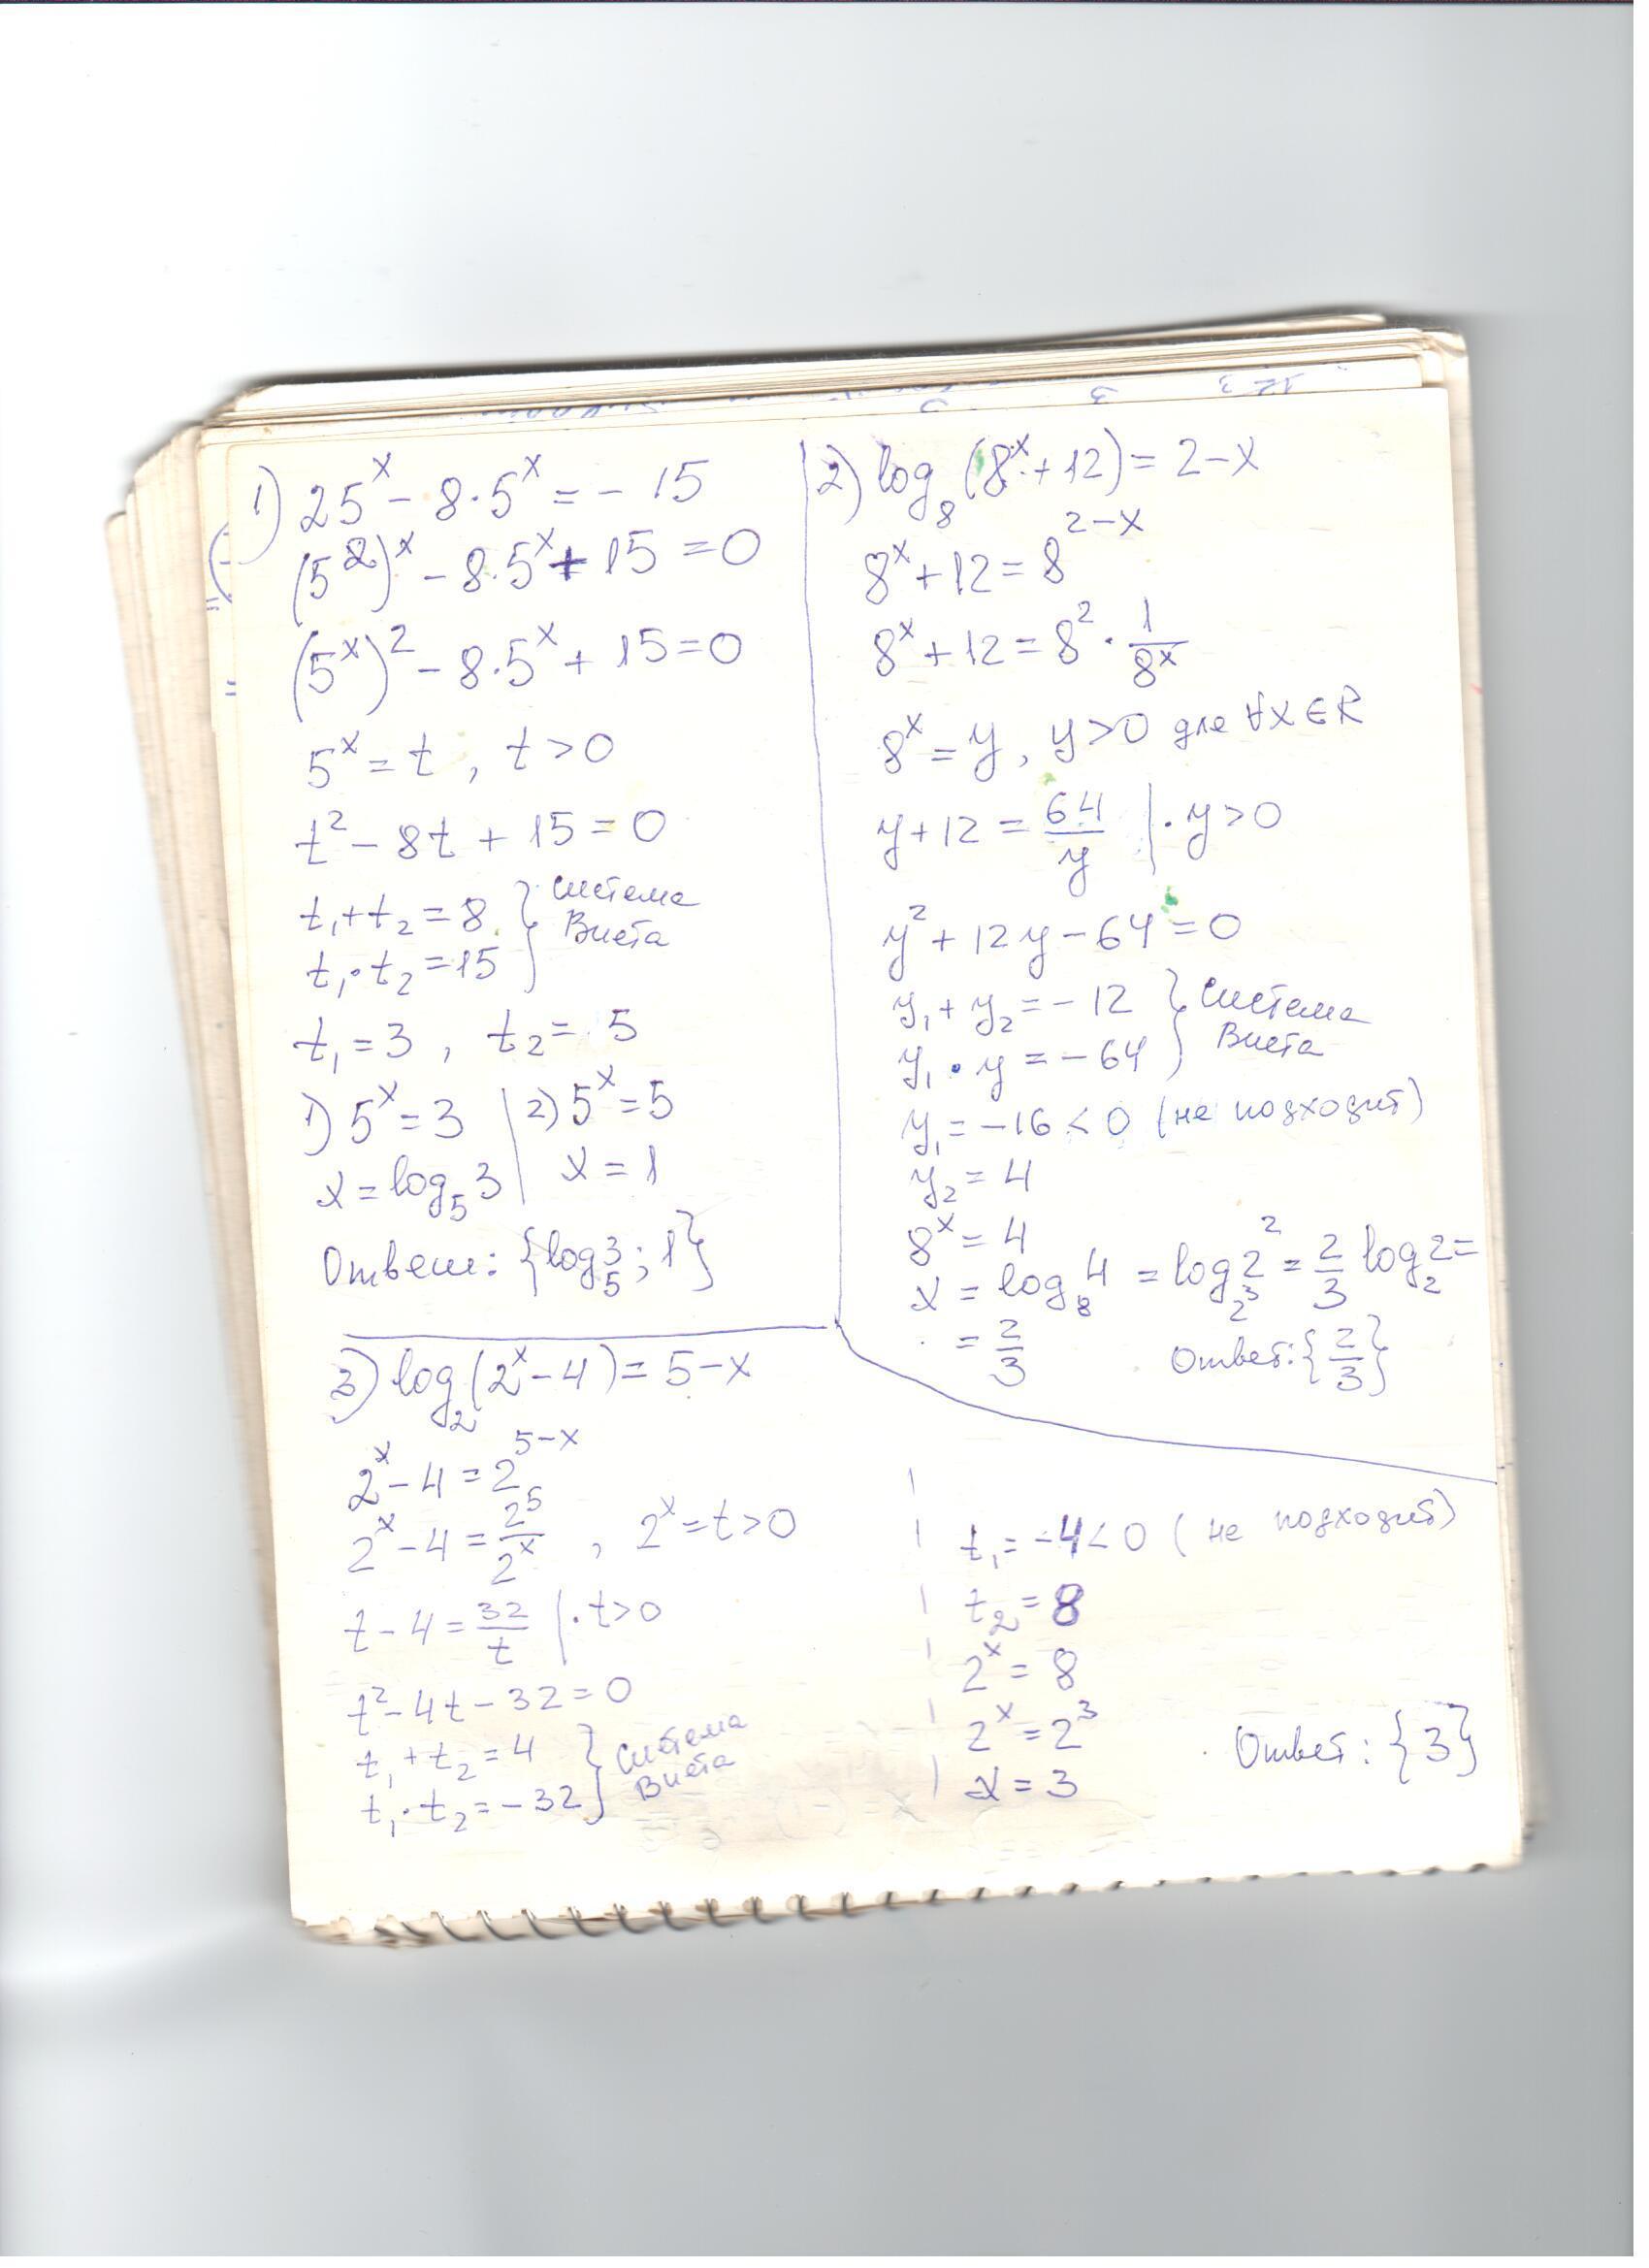 1) 25^x - 8·5^x = - 15
(5^2)^x - 8·5^x + 15 = 0
(5^x)^2 - 8·5^x + 15 = 0
5^x = t , t > 0
t^2 - 8t + 15 = 0
t₁ + t₂ = 8 } система
t₁ · t₂ = 15 } Виета
t₁ = 3 , t₂ = 5
1) 5^x = 3 | 2) 5^x = 5
x = log₅ 3 | x = 1
Ответ: {log₅ 3 ; 1}
2) log₈ (8^x + 12) = 2 - x
8^x + 12 = 8^(2-x)
8^x + 12 = 8^2 · 1/8^x
8^x = y, y > 0 для ∀x∈R
y + 12 = 64/y | · y > 0
y^2 + 12y - 64 = 0
y₁ + y₂ = - 12 } система
y₁ · y = - 64 } Виета
y₁ = -16 < 0 (не подходит)
y₂ = 4
8^x = 4
x = log₈ 4 = log_(2^3) 2^2 = 2/3 log₂ 2 =
= 2/3 Ответ: {2/3}
3) log₂ (2^x - 4) = 5 - x
2^x - 4 = 2^(5-x)
2^x - 4 = 2^5/2^x , 2^x = t > 0
t - 4 = 32/t | · t > 0
t^2 - 4t - 32 = 0
t₁ + t₂ = 4 } система
t₁ · t₂ = - 32 } Виета
t₁ = -4 < 0 (не подходит)
t₂ = 8
2^x = 8
2^x = 2^3
x = 3 Ответ: {3}